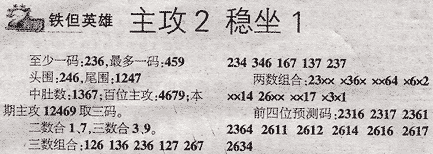 铁但英雄
主攻2 稳坐1
至少一码:236,最多一码:459
头围:246,尾围:1247
中肚数:1367;百位主攻:4679;本
期主攻 12469 取三码。
二数合 1,7,三数合 3,9。
三数组合:126 136 236 127 267
234 346 167 137 237
两数组合:23xx x36x xx64 x6x2
xx14 26xx xx17 x3x1
前四位预测码:2316 2317 2361
2364 2611 2612 2614 2616 2617
2634